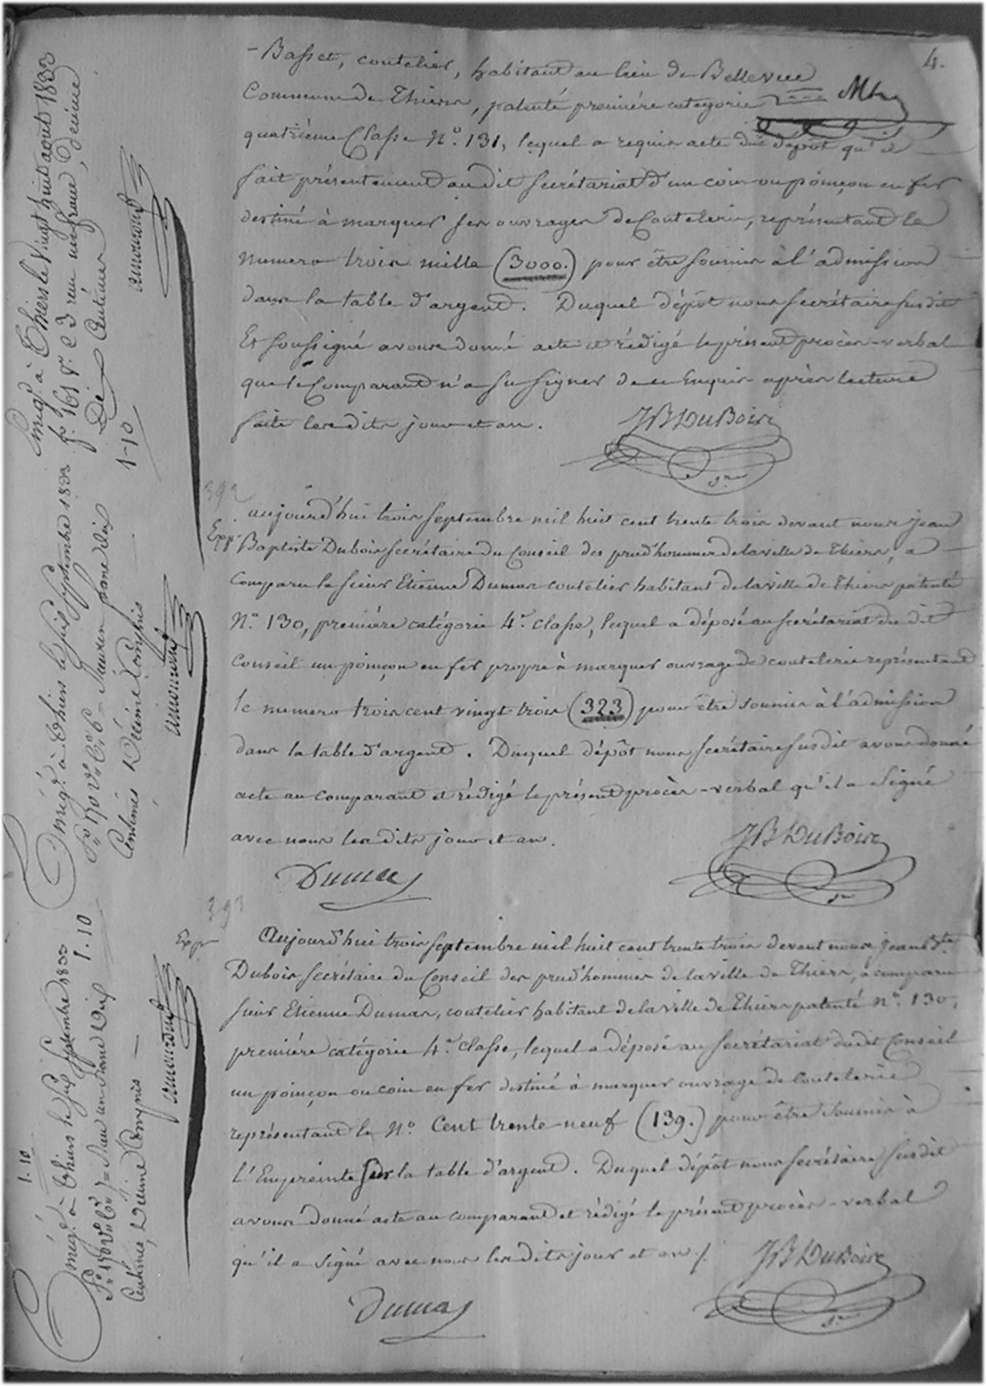 4.
- Basset, coutelier, habitant au lieu de Bellevue
Commune de Thiers, patenté première categorie
quatrième Classe N.° 131, lequel a requis acte du dépôt qu'il
fait présentement au dit secrétariat d'un coin ou poinçon en fer
destiné à marquer ses ouvrages de Coutelerie, représentant le
numero trois mille (3000.) pour être soumis à l'admission
dans la table d'argent. Duquel dépôt nous secrétaire susdit
Et soussigné avons donné acte et rédigé le présent procès-verbal
que le Comparant n'a su signer de ce Enquis après lecture
faite lesdits jour et an.
JB DuBois
Sre
392
Exp.
aujourd'hui trois septembre mil huit cent trente trois devant nous jean
Baptiste Dubois secrétaire du Conseil des prud'hommes de la ville de Thiers, a
Comparu le sieur Etienne Dumas coutelier habitant de la ville de Thiers patenté
N.° 130, première catégorie 4.e classe, lequel a déposé au secrétariat du dit
Conseil un poinçon en fer propre à marquer ouvrage de coutelerie représentant
le numero trois cent vingt trois (323) pour être soumis à l'admission
dans la table d'argent. Duquel dépôt nous secrétaire susdit avons donné
acte au comparant et rédigé le présent procès-verbal qu'il a signé
avec nous lesdits jour et an.
JB DuBois
Sre
Dumas
393
Exp.
Aujourd'hui trois septembre mil huit cent trente trois devant nous jean Bte
Dubois secrétaire du Conseil des prud'hommes de la ville de Thiers, a comparu
sieur Etienne Dumas, coutelier habitant de la ville de Thiers patenté N.° 130,
première catégorie 4.e classe, lequel a déposé au secrétariat dudit Conseil
un poinçon ou coin en fer destiné à marquer ouvrage de coutelerie
représentant le N.° Cent trente-neuf (139.) pour être soumis à
L'Empreinte sur la table d'argent. Duquel dépôt nous secrétaire susdit
avons donné acte au comparant et rédigé le présent procès-verbal
qu'il a signé avec nous lesdits jour et an /.
JB DuBois
Sre
Dumas
Enreg.é à Thiers le Vingt huit août 1833
f.° 161 v.°
1-10
Enreg.é à Thiers le six septembre 1833
Centimes Décime Compris
1.10
Enreg.é à Thiers le six septembre 1833
Centimes, Décime Compris
1.10